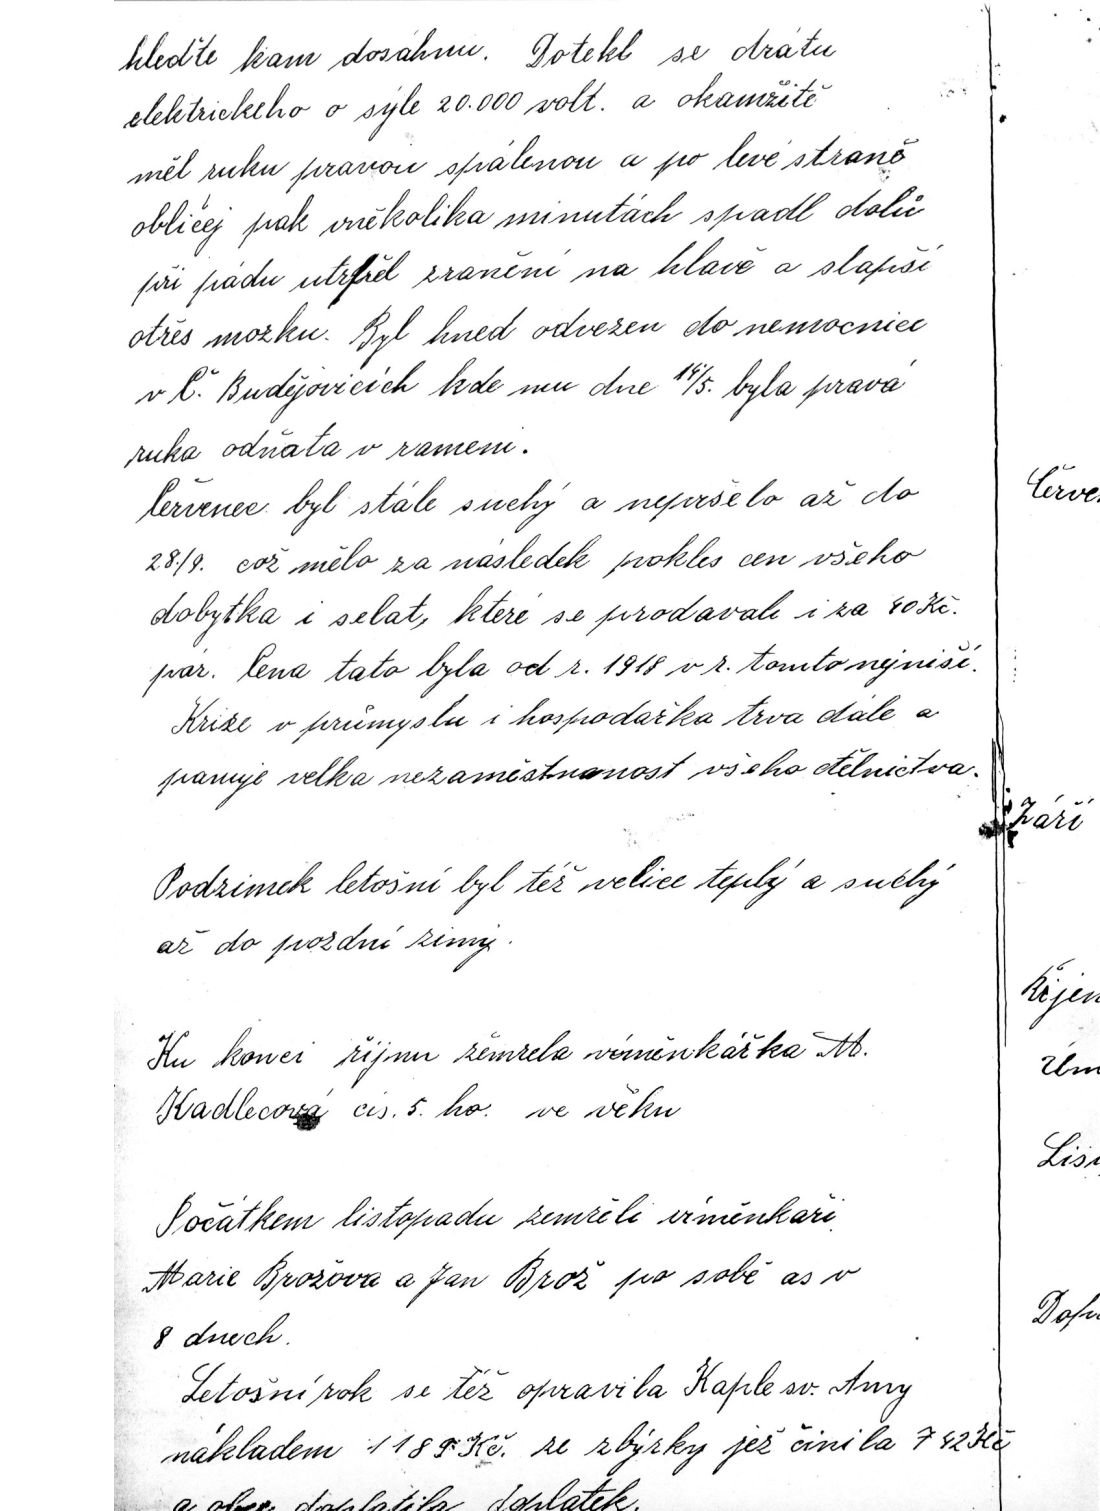 hleďte kam dosáhnu. Dotekl se drátu
elektrickeho o sýle 20.000 volt. a okamžitě
měl ruku pravou spálenou a po levé straně
obličej pak vněkolika minutách spadl dolů
při pádu utrpěl zranění na hlavě a slapší
otřes mozku. Byl hned odvezen do nemocnice
v Č. Budějovicích kde mu dne /5. byla pravá
ruka odňata v rameni.
Červenec byl stále suchý a nepršelo až do
28./9. což mělo za následek pokles cen všeho
dobytka i selat, které se prodavali i za 40 Kč.
pár. Cena tato byla od r. 1918 v r. tomto nejniší.
Krize v průmyslu i hospodařka trva dále a
panuje velka nezaměstnanost všeho dělnictva.
Podzimek letošní byl též velice teplý a suchý
až do pozdní zimy.
Ku konci říjnu zemřela výměnkářka M.
Kadlecová čis. 5. ho. ve věku
Počátkem listopadu zemřeli výměnkaři
Marie Brožova a Jan Brož po sobě as v
8 dnech.
Letošní rok se též opravila Kaple sv. Anny
nákladem Kč. ze zbýrky jež činila 742 Kč
a obec doplatila doplatek.
Červe
Září
Říjen
Lis